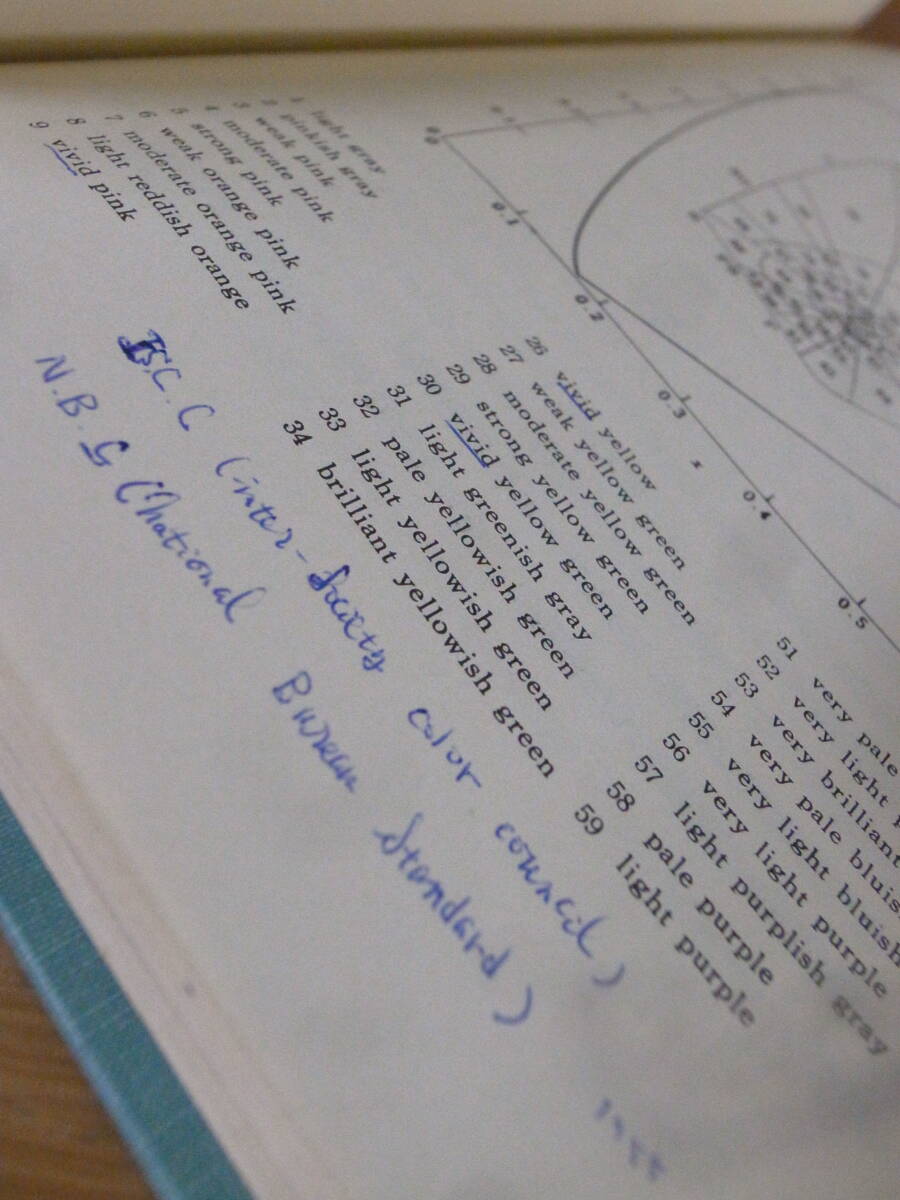 0
0.1
0.2
0.3
x
0.4
0.5
1 light gray
2 pinkish gray
3 weak pink
4 moderate pink
5 strong pink
6 weak orange pink
7 moderate orange pink
8 light reddish orange
9 vivid pink
26 vivid yellow
27 weak yellow green
28 moderate yellow green
29 strong yellow green
30 vivid yellow green
31 light greenish gray
32 pale yellowish green
33 light yellowish green
34 brilliant yellowish green
51 very pale
52 very light
53 very brilliant
54 very pale bluis
55 very light bluish
56 very light purple
57 light purplish gray
58 pale purple
59 light purple
I.S.C.C (inter-Society color council)
N.B.S (National Bureau Standard)